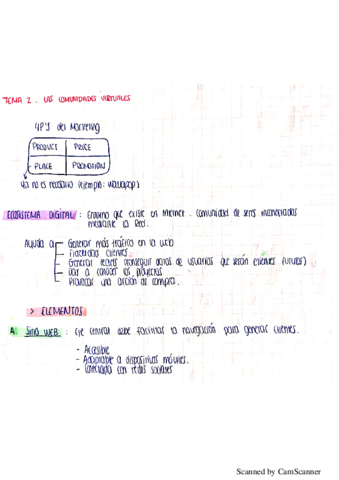 TEMA 2. LAS COMUNIDADES VIRTUALES
4P's del Marketing
PRODUCT PRICE
PLACE PROMOTION
Ya no es necesario (ejemplo: wallapop)
ECOSISTEMA DIGITAL: Entorno que existe en Internet. Comunidad de seres interconectados
mediante la Red.
Ayuda a
Generar más tráfico en la web
Fidelizar clientes
Generar leads (conseguir datos de usuarios que serán clientes futuros)
Dar a conocer los proyectos
Provocar una acción de compra.
> ELEMENTOS
A. SITIO WEB: Eje central debe facilitar la navegación para generar clientes.
- Accesible
- Adaptable a dispositivos móviles.
- Conectada con redes sociales
Scanned by CamScanner